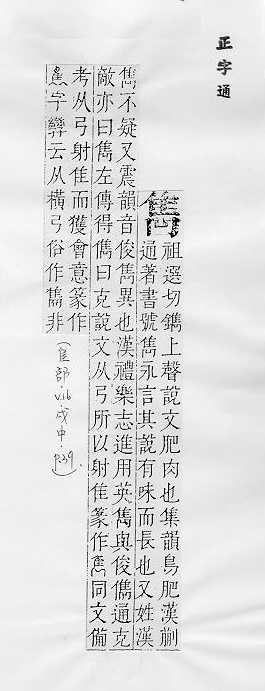 正字通
雋
祖選切鐫上聲說文肥肉也集韻鳥肥漢蒯
通著書號雋永言其說有味而長也又姓漢
雋不疑又震韻音俊雋異也漢禮樂志進用英雋與俊儁通克
敵亦曰雋左傳得雋曰克說文从弓所以射隹篆作同文備
考从弓射隹而獲會意篆作
字云从橫弓俗作非
(隹部.V.16
戌中.
p.29).